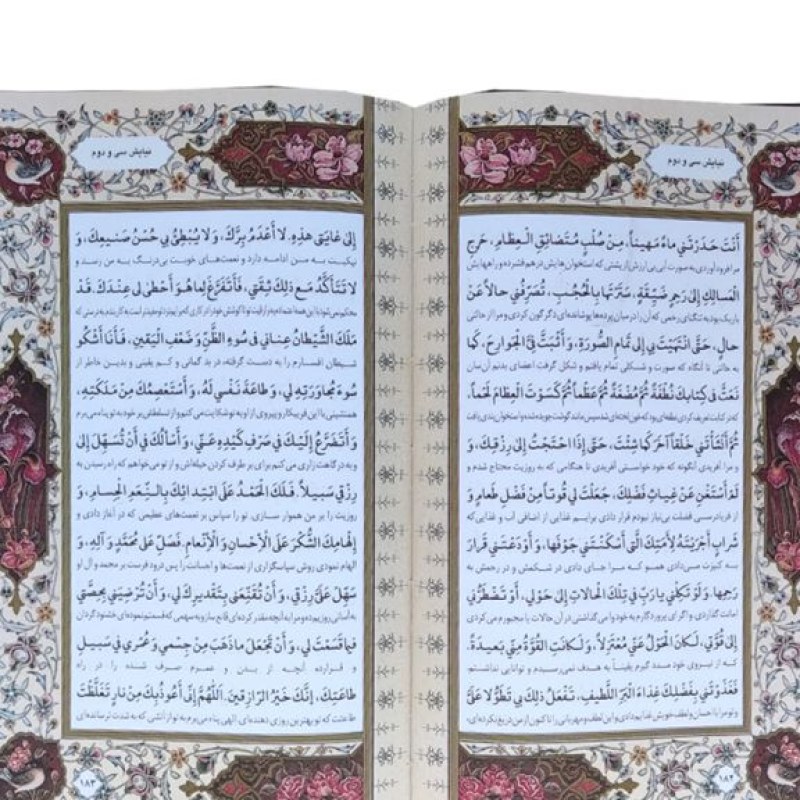 نیایش سی و دوم
أَنْتَ حَدَرْتَنِي مَاءً مَهِيناً، مِنْ صُلْبٍ مُتَضَائِقِ الْعِظَامِ، حَرِجِ
مرا فرود آوردی به صورت آبی بی ارزش از پشتی که استخوان‌هایش در هم فشرده و راههایش
الْمَسَالِكِ إِلَى رَحِمٍ ضَيِّقَةٍ، سَتَرْتَهَا بِالْحُجُبِ، تُصَرِّفُنِي حَالًا عَنْ
باریک بود به تنگنای رحمی که آن را در میان پرده‌ها پوشانده‌ای دگرگون کردی و مرا از حالتی
حَالٍ، حَتَّى انْتَهَيْتَ بِي إِلَى تَمَامِ الصُّورَةِ، وَ أَثْبَتَّ فِيَّ الْجَوَارِحَ، كَمَا
به حالتی تا آنگاه که صورت و شکلی تمام یافتم و شکل گرفت اعضای بدنم آن‌سان
نَعَتَّ فِي كِتَابِكَ نُطْفَةً ثُمَّ مُضْغَةً ثُمَّ عَظْماً ثُمَّ كَسَوْتَ الْعِظَامَ لَحْماً،
ثُمَّ أَنْشَأْتَنِي خَلْقاً آخَرَ كَمَا شِئْتَ، حَتَّى إِذَا احْتَجْتُ إِلَى رِزْقِكَ، وَ
و مرا آفریدی آنگونه که خود خواستی آفریدی تا هنگامی که به روزیت محتاج شدم و
لَمْ أَسْتَغْنِ عَنْ غِيَاثِ فَضْلِكَ، جَعَلْتَ لِي قُوتاً مِنْ فَضْلِ طَعَامٍ وَ
از فریادرسی فضلت بی‌نیاز نبودم قرار دادی برایم غذایی از اضافی آب و غذایی که
شَرَابٍ أَجْرَيْتَهُ لِأَمَتِكَ الَّتِي أَسْكَنْتَنِي جَوْفَهَا، وَ أَوْدَعْتَنِي قَرَارَ
به کنیزت می‌دادی همو که مرا جای دادی در شکمش و در رحمش به
رَحِمِهَا. وَ لَوْ تَكِلْنِي يَا رَبِّ فِي تِلْكَ الْحَالَاتِ إِلَى حَوْلِي، أَوْ تَضْطَرُّنِي
امانت گذاردی و اگر ای پروردگارم به خود وا می گذاشتی در آن حالات یا مجبورم می‌کردی
إِلَى قُوَّتِي، لَكَانَ الْحَوْلُ عَنِّي مُعْتَزِلًا، وَ لَكَانَتِ الْقُوَّةُ مِنِّي بَعِيدَةً.
که از نیروی خود مدد گیرم یقیناً به هدف نمی‌رسیدم و توانایی نداشتم
فَغَذَوْتَنِي بِفَضْلِكَ غِذَاءَ الْبَرِّ اللَّطِيفِ، تَفْعَلُ ذَلِكَ بِي تَطَوُّلًا عَلَيَّ
و تو مرا با احسان و لطف خویش غذایم دادی و این لطف و مهربانی را تا کنون از من دریغ نکرده‌ای،
۱۸۲
نیایش سی و دوم
إِلَى غَايَتِي هَذِهِ، لَا أَعْدَمُ بِرَّكَ، وَ لَا يُبْطِئُ بِي حُسْنُ صَنِيعِكَ، وَ
نیکیت به من ادامه دارد و نعمت‌های خوبت بی‌درنگ به من رسد و
لَا تَتَأَكَّدُ مَعَ ذَلِكَ ثِقَتِي، فَأَتَفَرَّغَ لِمَا هُوَ أَحْظَى لِي عِنْدَكَ. قَدْ
مَلَكَ الشَّيْطَانُ عِنَانِي فِي سُوءِ الظَّنِّ وَ ضَعْفِ الْيَقِينِ، فَأَنَا أَشْكُو
شیطان افسارم را به دست گرفته، در بد گمانی و کم یقینی و بدین خاطر از
سُوءَ مُجَاوَرَتِهِ لِي، وَ طَاعَةَ نَفْسِي لَهُ، وَ أَسْتَعْصِمُكَ مِنْ مَلَكَتِهِ،
همنشینی با این فریبکار و پیروی از او به تو شکایت می کنم و از تسلطش بر خود به تو پناه می‌برم
وَ أَتَضَرَّعُ إِلَيْكَ فِي صَرْفِ كَيْدِهِ عَنِّي، وَ أَسْأَلُكَ فِي أَنْ تُسَهِّلَ إِلَى
و به درگاهت زاری می کنم برای بر طرف کردن حیله‌اش و از تو می‌خواهم که راه رسیدن به
رِزْقِي سَبِيلًا. فَلَكَ الْحَمْدُ عَلَى ابْتِدَائِكَ بِالنِّعَمِ الْجِسَامِ، وَ
روزیت را بر من هموار سازی، تو را سپاس بر نعمت‌های عظیمی که در آغاز دادی و
إِلْهَامِكَ الشُّكْرَ عَلَى الْإِحْسَانِ وَ الْأَنْعَامِ. فَصَلِّ عَلَى مُحَمَّدٍ وَ آلِهِ، وَ
الهام نمودی روش سپاسگزاری از نعمت‌ها و احسانت را پس درود فرست بر محمد و آل او
سَهِّلْ عَلَيَّ رِزْقِي، وَ أَنْ تُقَنِّعَنِي بِتَقْدِيرِكَ لِي، وَ أَنْ تُرْضِيَنِي بِحِصَّتِي
به آسانی روزیم ده و مرا به آنچه مقدر کرده‌ای قانع ساز و به سهمی که قسمتم نموده‌ای خشنود گردان
فِيمَا قَسَمْتَ لِي، وَ أَنْ تَجْعَلَ مَا ذَهَبَ مِنْ جِسْمِي وَ عُمُرِي فِي سَبِيلِ
و قرار ده آنچه از بدن و عمرم صرف شده را در راه
طَاعَتِكَ، إِنَّكَ خَيْرُ الرَّازِقِينَ. اَللَّهُمَّ إِنِّي أَعُوذُ بِكَ مِنْ نَارٍ تَغَلَّظْتَ
طاعتت که تو بهترین روزی دهنده‌ای الهی پناه می‌برم به تو از آتشی که به شدت ترسانده‌ای
۱۸۳